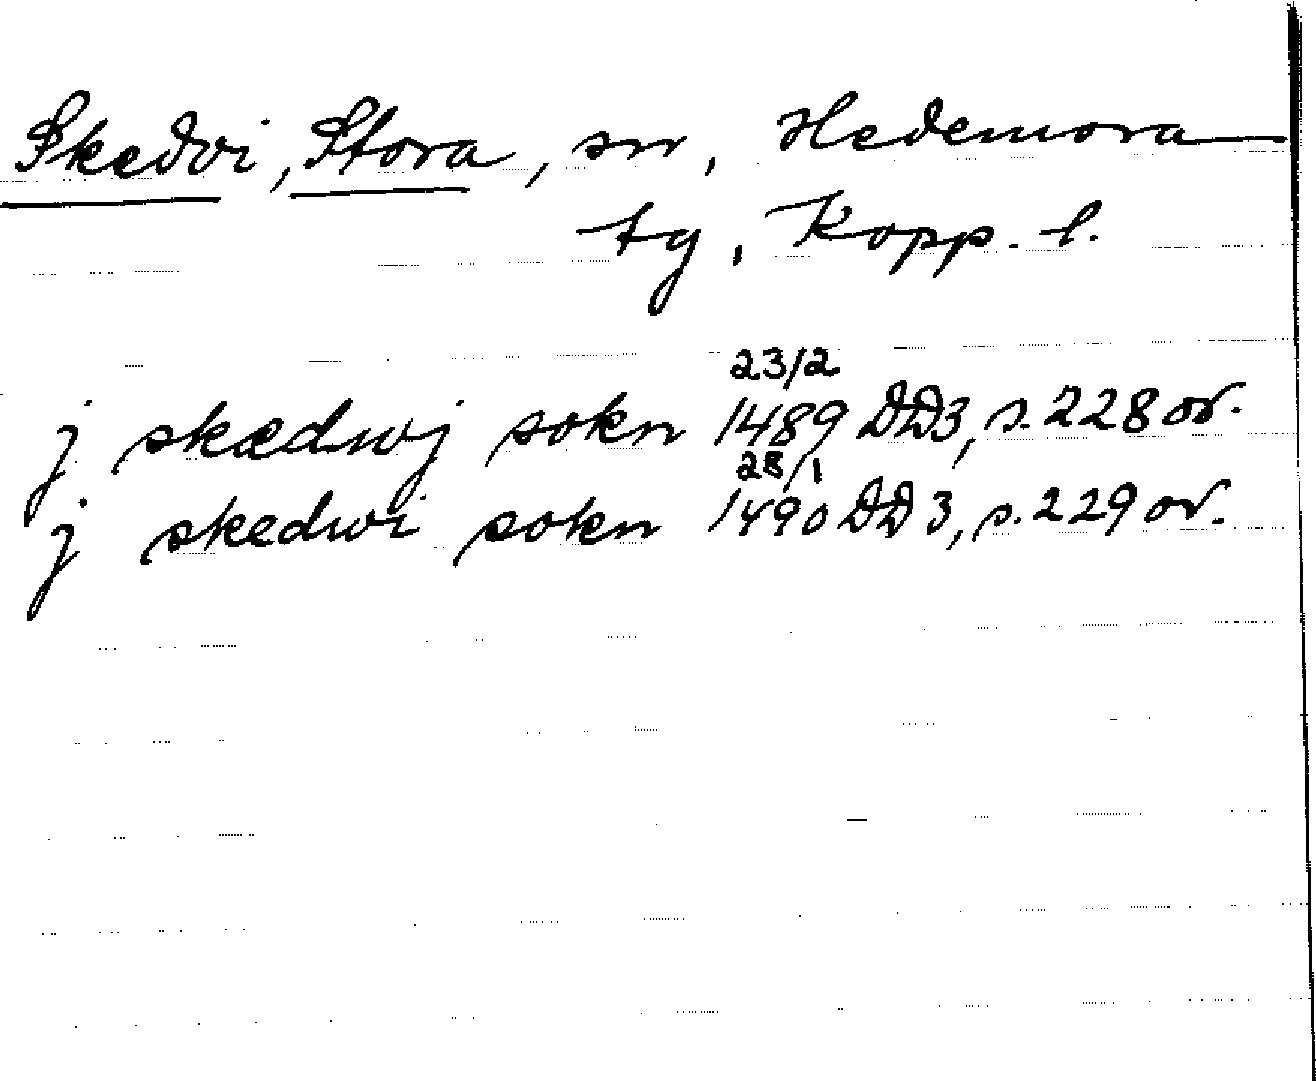 Skedvi, Stora, sn, Hedemora
tg, Kopp. l.
23/2
j skædwj sokn 1489 DD3, s. 228 or.
28/1
j skedwi sokn 1490 DD 3, s. 229 or.